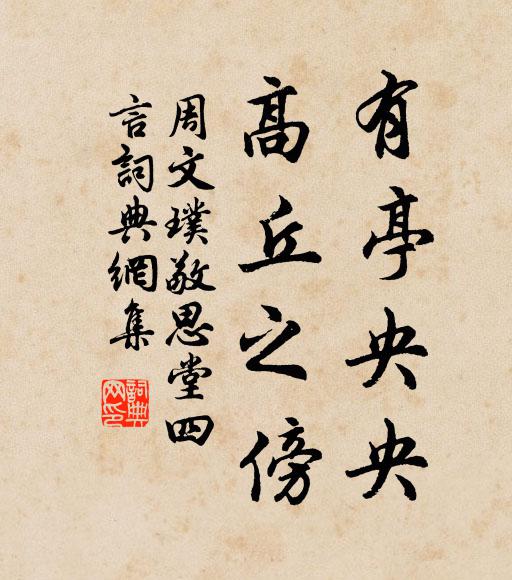 有亭央央
高丘之傍
周文璞敬思堂四
言詞典網集
詞典
网印